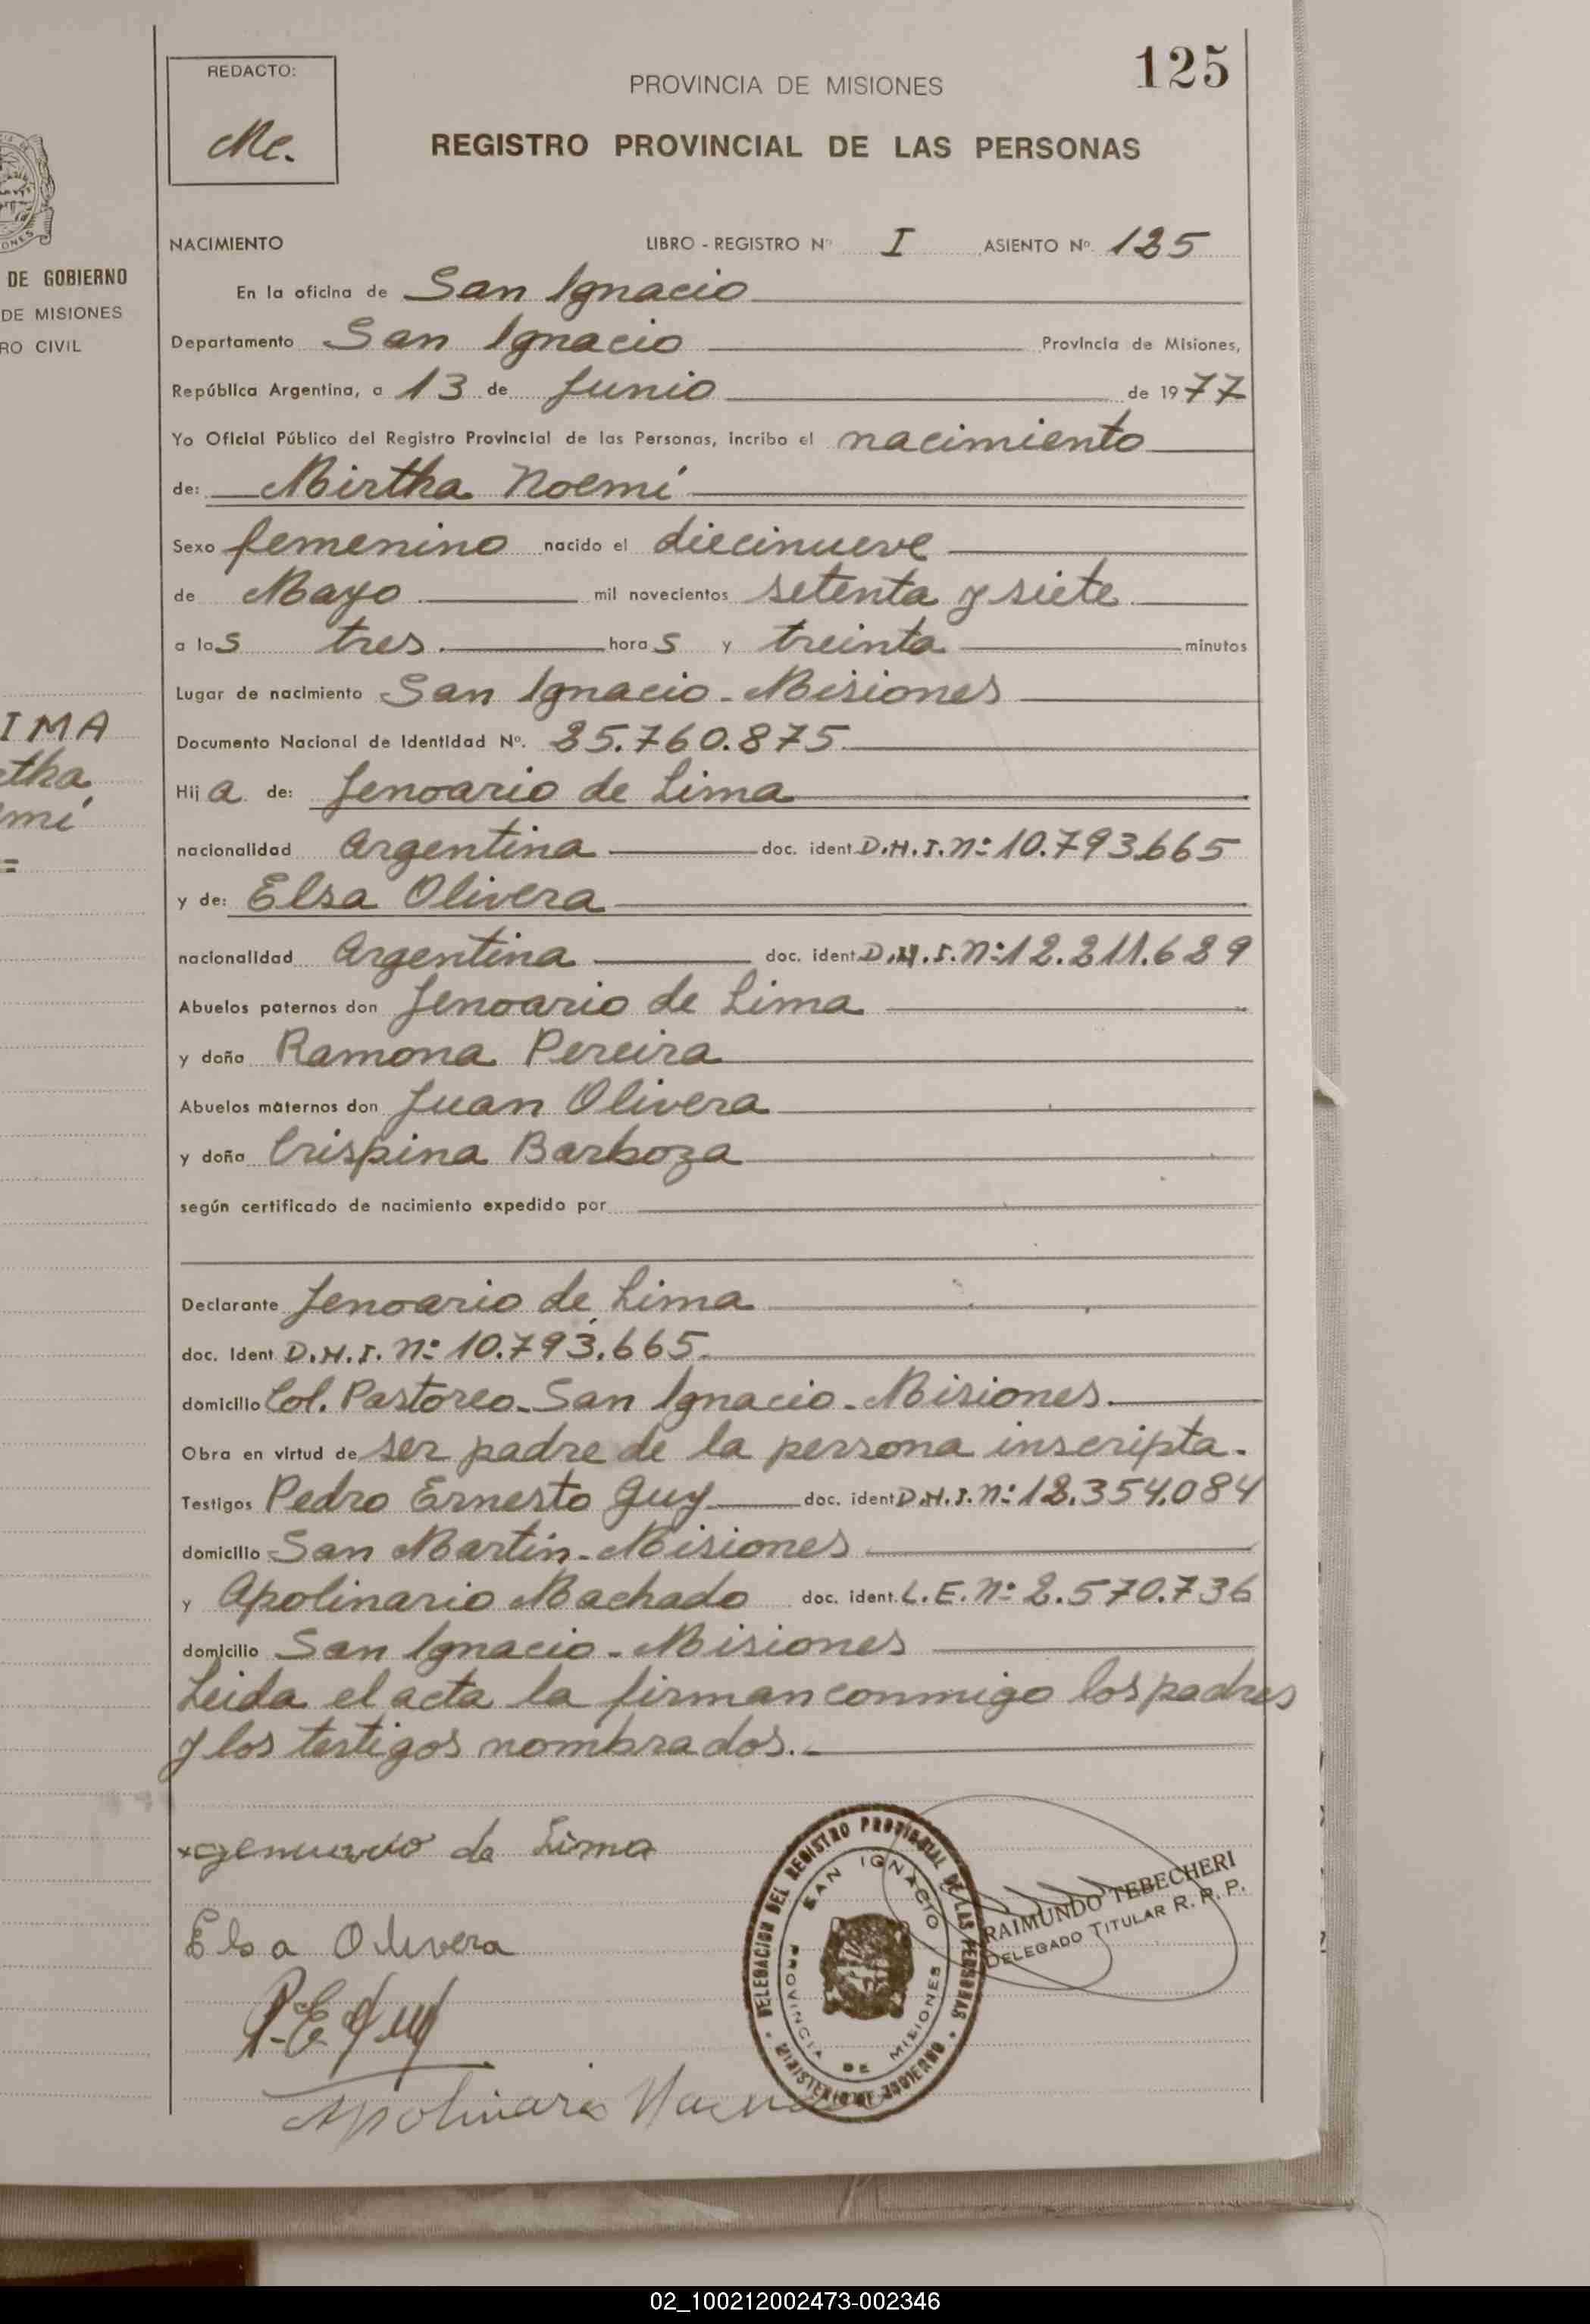 125
REDACTO:
Mc.
PROVINCIA DE MISIONES
REGISTRO PROVINCIAL DE LAS PERSONAS
DE GOBIERNO
DE MISIONES
RO CIVIL
IMA
tha
mí
NACIMIENTO LIBRO - REGISTRO Nº I ASIENTO Nº 125
En la oficina de San Ignacio
Departamento San Ignacio Provincia de Misiones,
República Argentina, a 13 de Junio de 1977
Yo Oficial Público del Registro Provincial de las Personas, incribo el nacimiento
de: Mirtha Noemí
Sexo femenino nacido el diecinueve
de Mayo mil novecientos setenta y siete
a las tres horas y treinta minutos
Lugar de nacimiento San Ignacio - Misiones
Documento Nacional de Identidad Nº. 25.760.875
Hija de: Jenoario de Lima
nacionalidad Argentina doc. ident. D.N.I. Nº: 10.793.665
y de: Elsa Olivera
nacionalidad Argentina doc. ident. D.N.I. Nº: 12.211.629
Abuelos paternos don Jenoario de Lima
y doña Ramona Pereira
Abuelos maternos don Juan Olivera
y doña Crispina Barboza
según certificado de nacimiento expedido por
Declarante Jenoario de Lima
doc. Ident D.N.I. Nº: 10.793.665.
domicilio Col. Pastoreo - San Ignacio - Misiones.
Obra en virtud de ser padre de la persona inscripta.
Testigos Pedro Ernesto Guy doc. ident D.N.I. Nº: 12.354.084
domicilio San Martín - Misiones
y Apolinario Machado doc. ident. L.E. Nº: 2.570.736
domicilio San Ignacio - Misiones
Leida el acta la firman conmigo los padres
y los testigos nombrados.
genuario de Lima
Elsa Olivera
P.E Guy
Apolinario
DELEGACION DEL REGISTRO PROVINCIAL DE LAS PERSONAS
MINISTERIO DE GOBIERNO
SAN IGNACIO
PROVINCIA DE MISIONES
RAIMUNDO TEBECHERI
DELEGADO TITULAR R. P. P.
02_100212002473-002346